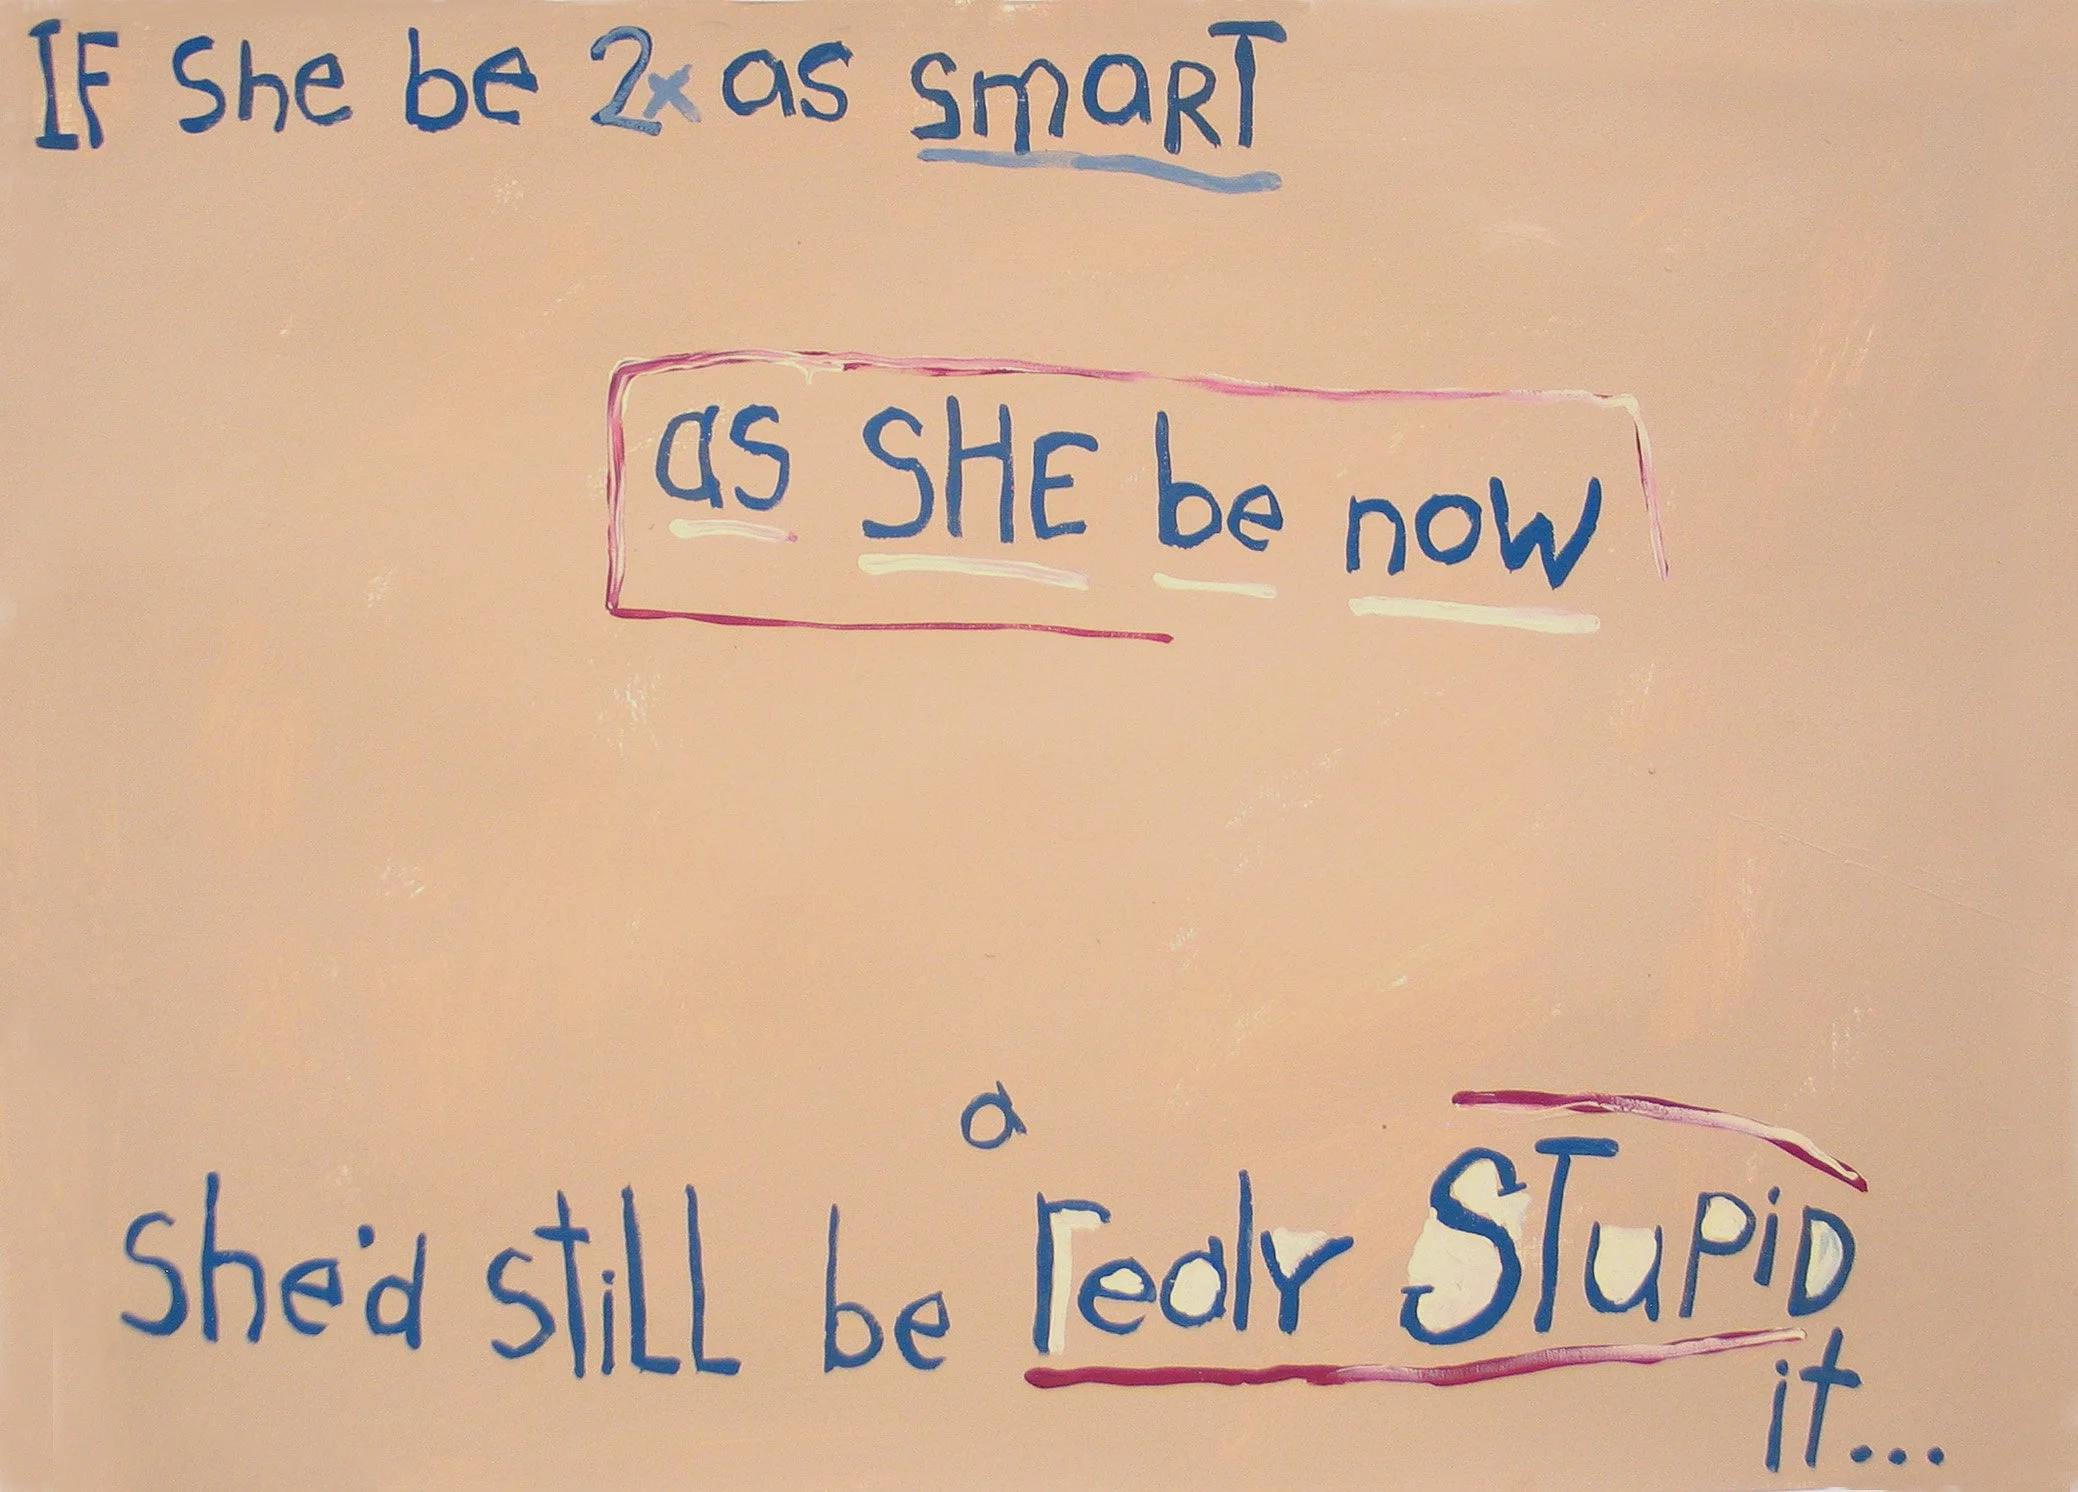 IF She be 2x as smaRT
as SHE be now
a
She'd stiLL be realy STupiD
it...